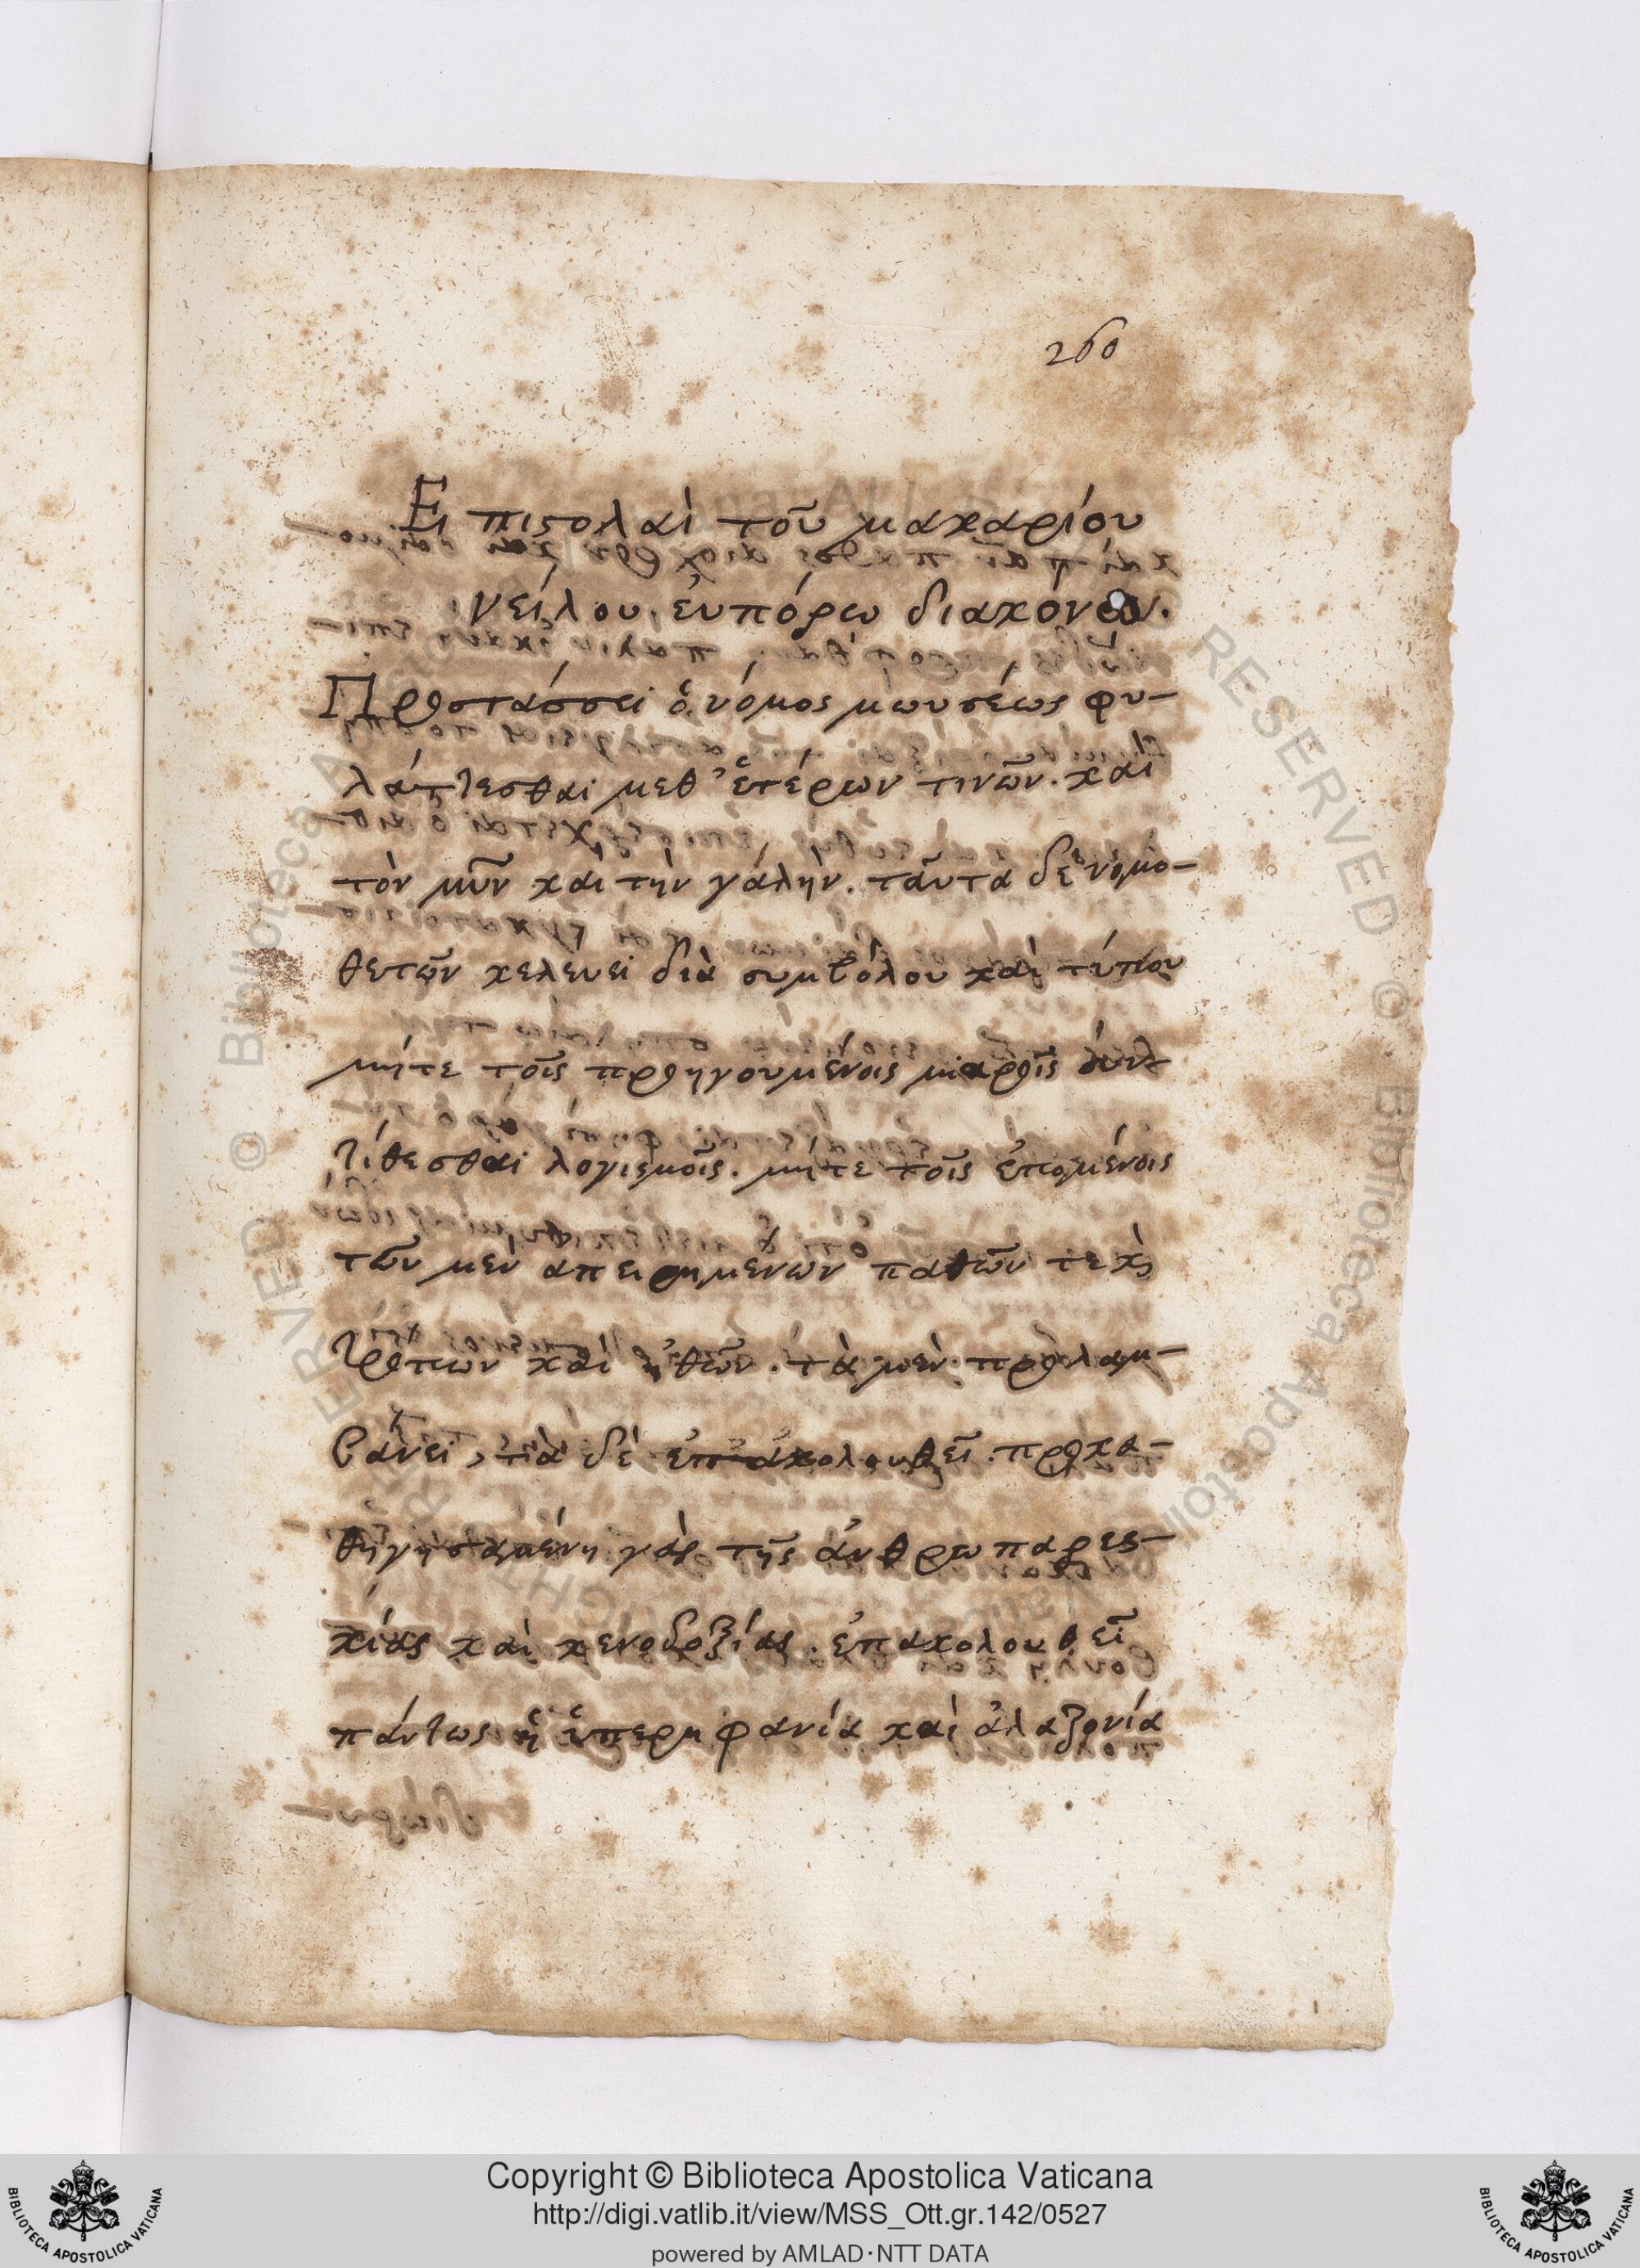 260
Ει πιστολαὶ τοῦ μακαρίου
νείλου. ἐυπόρω διακόνων.
Προστάσσει ὁ νόμος μωυσέως φυ-
λάττεσθαι μεθ' ἑτέρων τινῶν. καὶ
τὸν μῦν καὶ τὴν γάλην. ταῦτα δὲ νομο-
θετῶν κελευει διὰ συμβόλου καὶ τύπου
μήτε τοῖς προηγουμένοις μιαροῖς συν
τίθεσθαι λογισμοῖς. μήτε τοῖς ἑπομένοις
τῶν μὲν ἀπειρημένων παθῶν τε κὶ
τρόπων καὶ ἠθῶν. τὰ μεν προλαμ-
βάνει, τὰ δὲ ἐπακολουθεῖ. προκα-
θηγησαμένη γὰρ τῆς ἀνθρωπαρες-
κίας καὶ κενοδοξίας. ἐπακολουθεῖ
πάντως ἡ ὑπερηφανία καὶ ἀλαζονία
RESERVED © Biblioteca Apostolica Vaticana
Copyright © Biblioteca Apostolica Vaticana
http://digi.vatlib.it/view/MSS_Ott.gr.142/0527
powered by AMLAD·NTT DATA
BIBLIOTECA APOSTOLICA VATICANA
BIBLIOTECA APOSTOLICA VATICANA